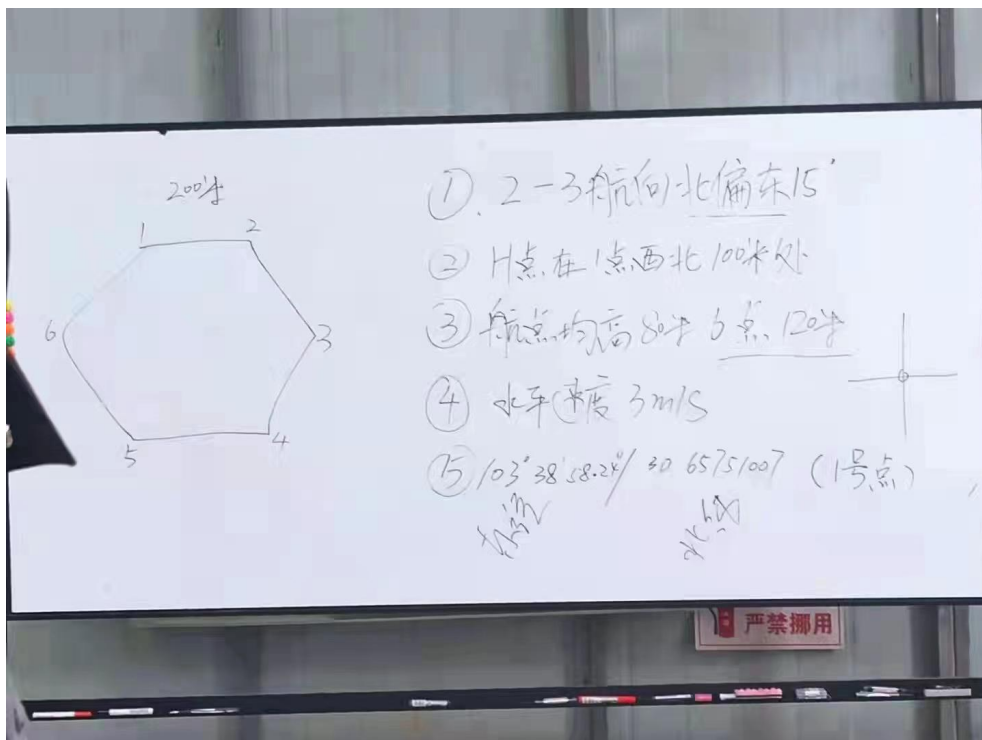 200米
1
2
6
3
5
4
①. 2-3航向北偏东15°
② H点在1点西北100米处
③ 航点均高80米 6点120米
④ 水平速度 3m/s
⑤ 103°38'58.24"/ 30.65751007 (1号点)
东经
北纬
严禁挪用